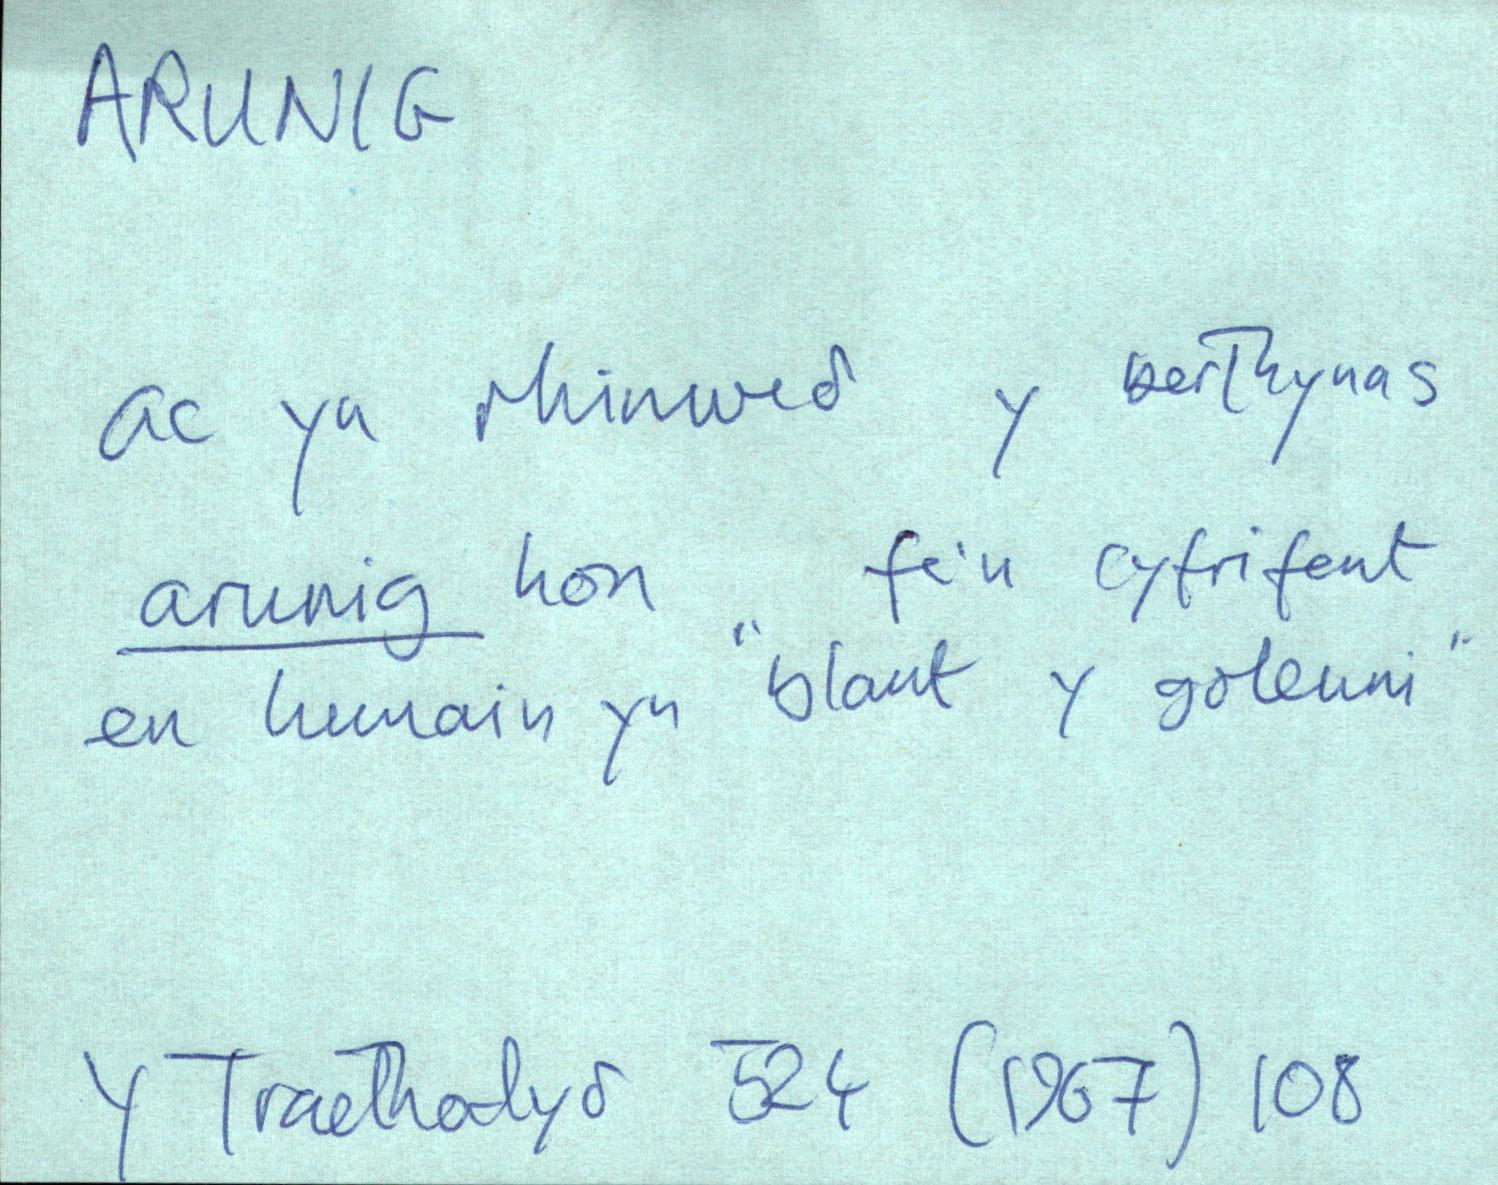 ARUNIG
ac yn rhinweδ y berthynas
arunig hon fe'u cyfrifent
eu hunain yn "blant y goleuni"
Y Traethodyδ 524 (1967) 108